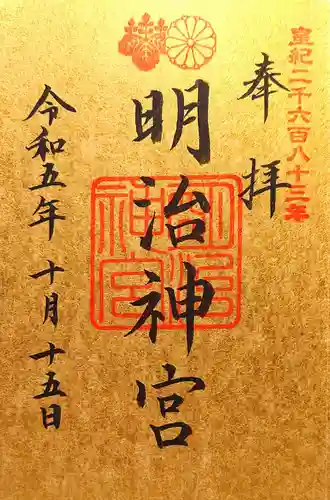 皇紀二千六百八十三年
奉拝
明治神宮
明治神宮
令和五年 十月 十五日